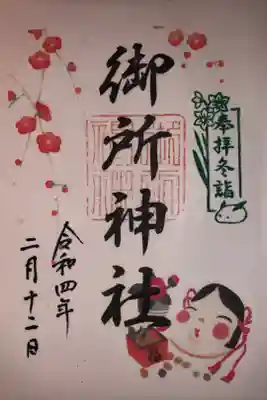 奉拝冬詣
御所神社
令和四年
二月十二日